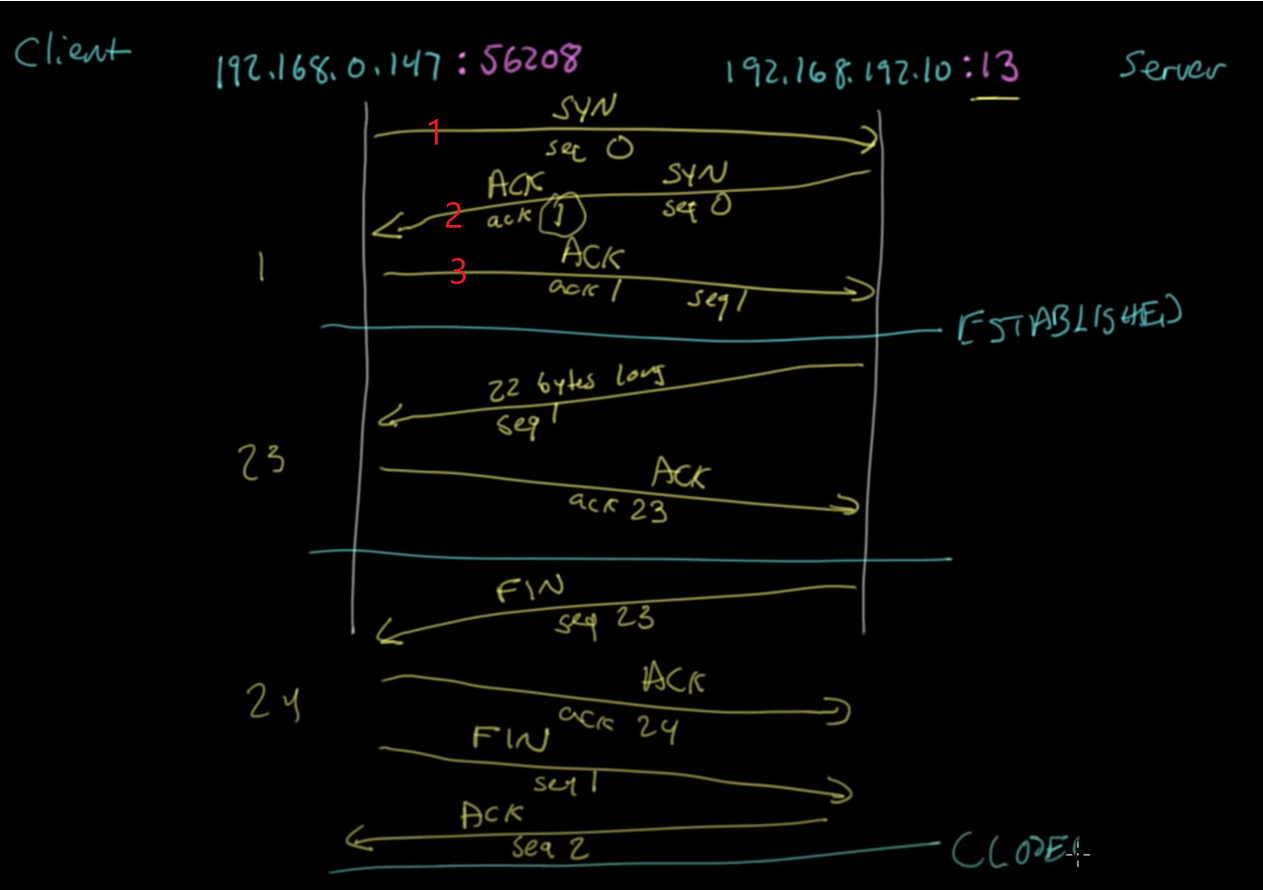 Client 192.168.0.147 :56208 192.168.192.10 :13 Server
SYN
1
seq 0
ACK SYN
2 ack 1 seq 0
ACK
1 3
ack 1 seq 1
ESTABLISHED
22 bytes long
seq 1
23
ACK
ack 23
FIN
seq 23
24
ACK
ack 24
FIN
seq 1
ACK
seq 2